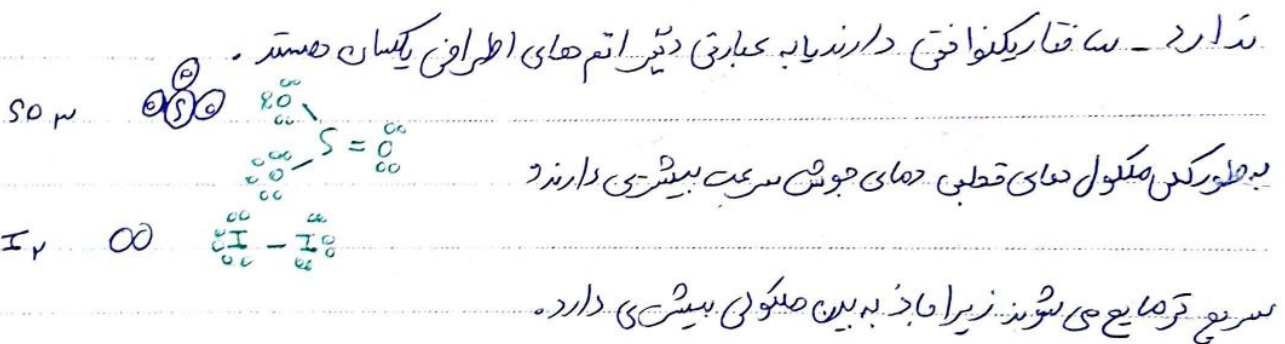 ندارد - ساختار یکنواختی دارند یا به عبارتی دیگر اتم های اطرافی یکسان هستند .
SO۳ O O S O :O: S = O O
به طور کلی مولکول های قطبی دمای جوش سرعت بیشتری دارند و
I۲ I - I
سریع تر مایع می شوند زیرا جاذبه بین مولکولی بیشتری دارد .